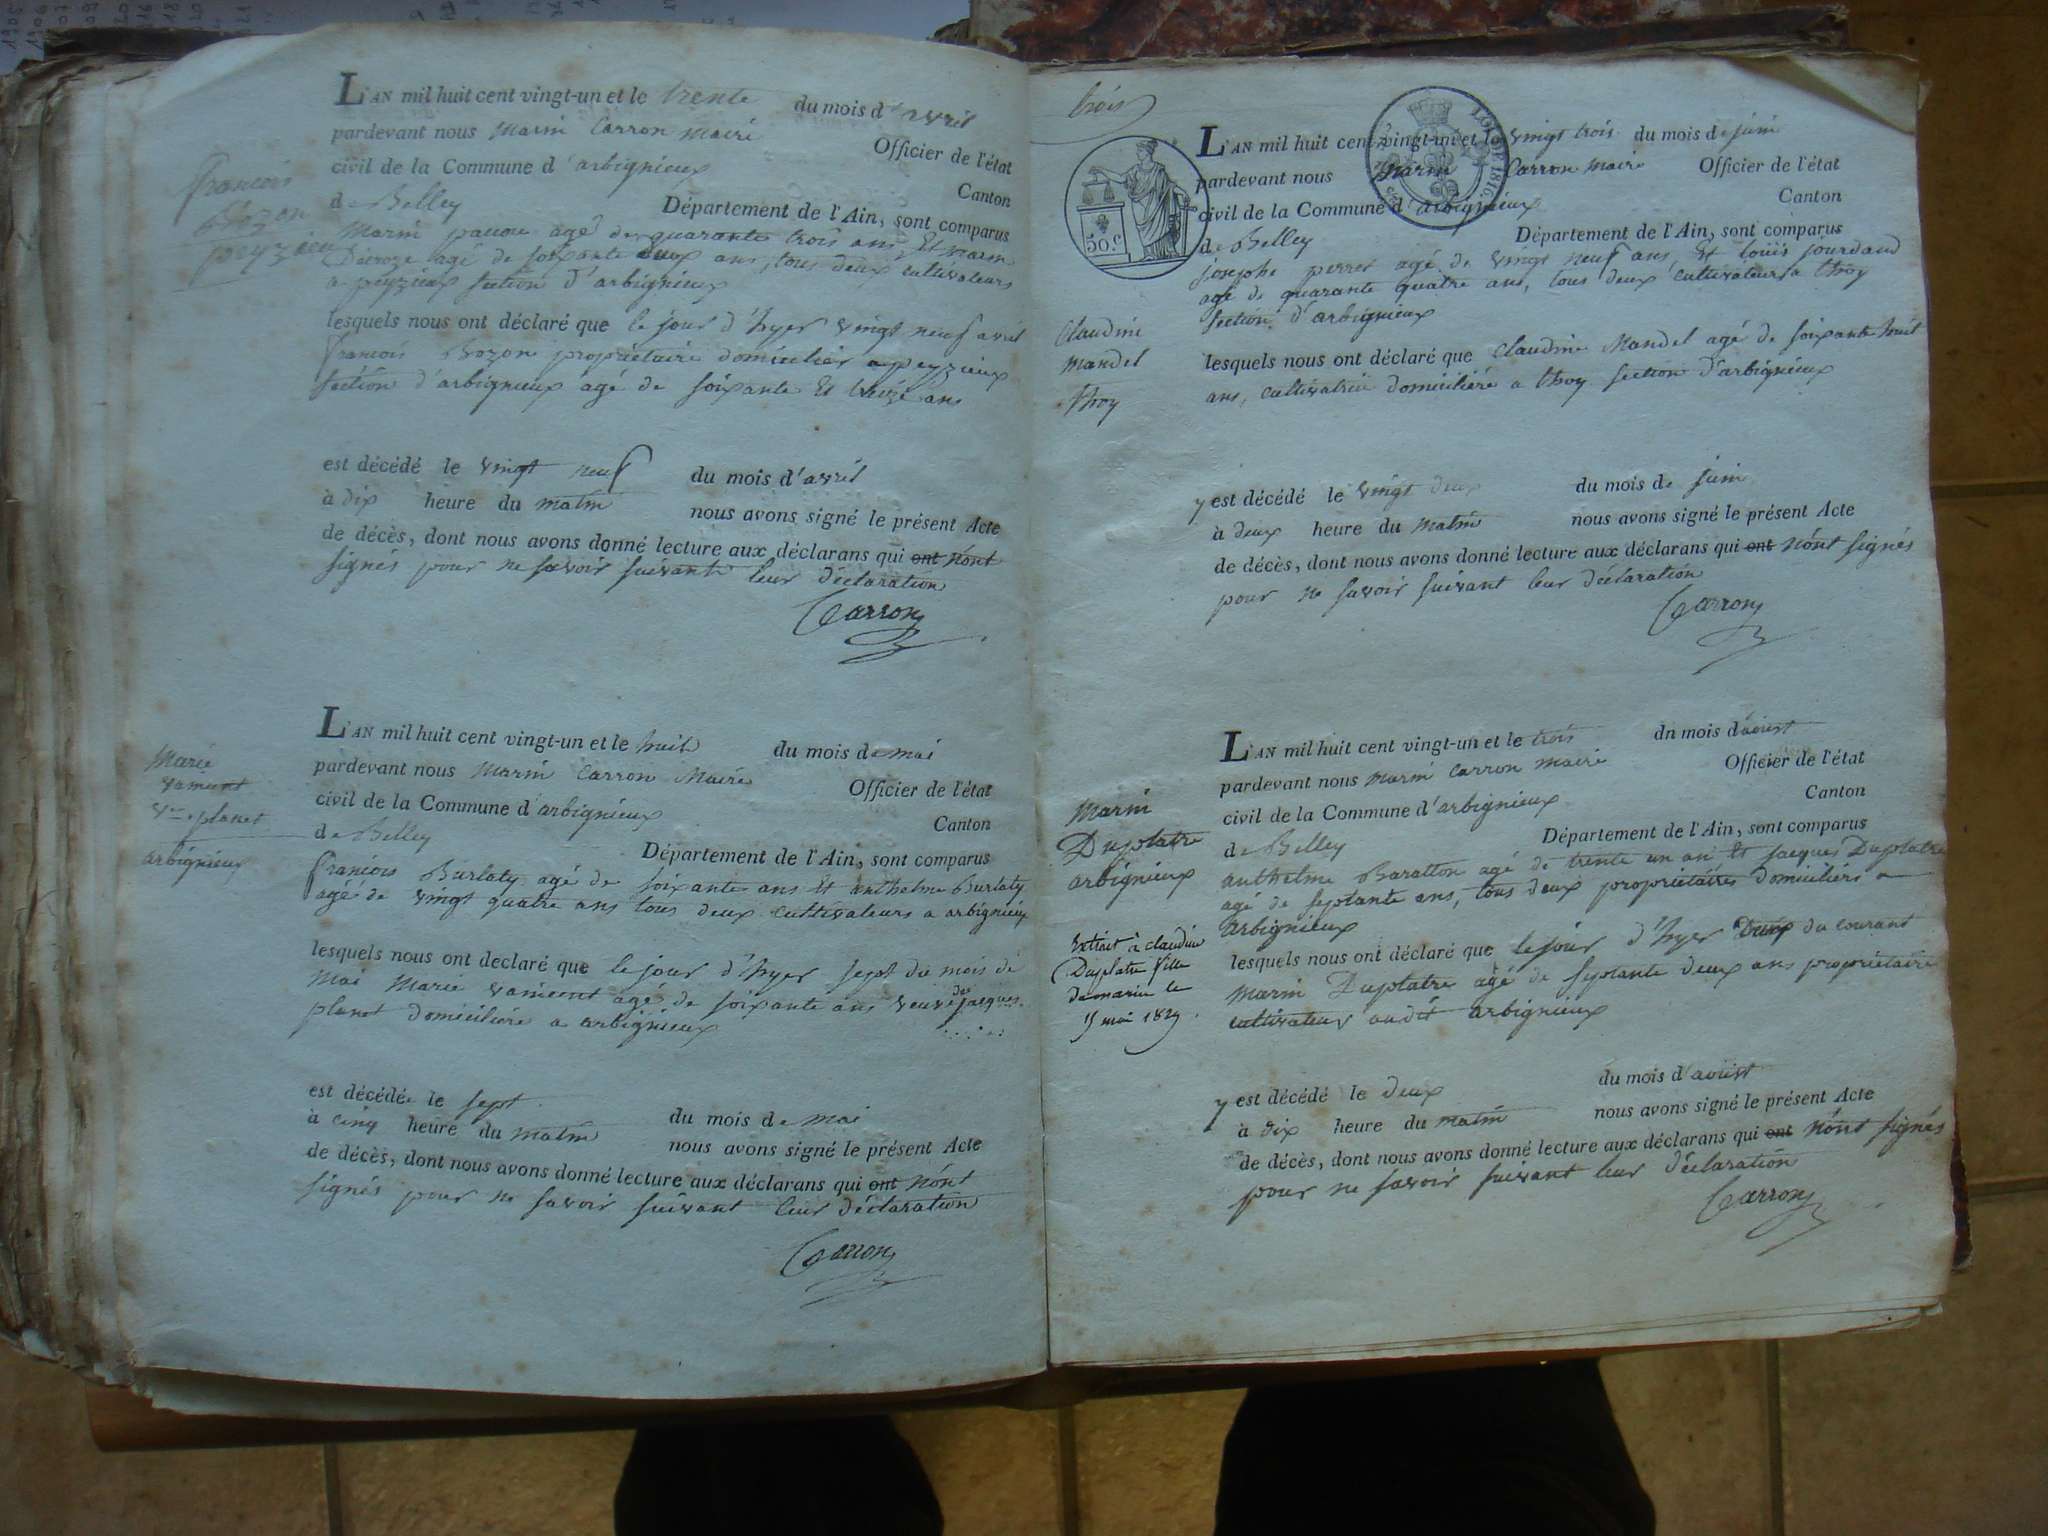 François
Bozon
peyzieu
L'AN mil huit cent vingt-un et le trente du mois d'avril
pardevant nous Marin Carron Maire Officier de l'état
civil de la Commune d'arbignieux Canton
de Belley Département de l'Ain, sont comparus
Marin agé de quarante trois ans Et Marin
Decroze agé de soixante deux ans, tous deux cultivateurs
a peyzieux section d'arbignieux
lesquels nous ont déclaré que le jour d'hyer vingt neuf avril
françois Bozon propriétaire domicilier a peyzieux
section d'arbignieux agé de soixante Et treize ans
est décédé le vingt neuf du mois d'avril
à dix heure du matin nous avons signé le présent Acte
de décès, dont nous avons donné lecture aux déclarans qui ont n'ont
signés pour ne savoir suivant leur déclaration
Carron
Marie
vament
Vve planet
arbignieux
L'AN mil huit cent vingt-un et le huit du mois de mai
pardevant nous Marin Carron Maire Officier de l'état
civil de la Commune d'arbignieux Canton
de Belley Département de l'Ain, sont comparus
françois Burlaty agé de soixante ans Et anthelme Burlaty
agé de vingt quatre ans tous deux cultivateurs a arbignieux
lesquels nous ont declaré que le jour d'hyer sept du mois de
mai Marie vament agé de soixante ans veuve de jacques
planet domiciliére a arbignieux
est décédée le sept du mois de mai
à cinq heure du matin nous avons signé le présent Acte
de décès, dont nous avons donné lecture aux déclarans qui ont n'ont
signés pour ne savoir suivant leur déclaration
Carron
trois
50 c.
LOI DE 1816
Claudine
Mandel
thoy
L'AN mil huit cent vingt-un et le vingt trois du mois de juin
pardevant nous Marin Carron Maire Officier de l'état
civil de la Commune d'arbignieux Canton
de Belley Département de l'Ain, sont comparus
josephe perret agé de vingt neuf ans Et louis jourdand
agé de quarante quatre ans, tous deux cultivateurs a thoy
section d'arbignieux
lesquels nous ont déclaré que Claudine Mandel agé de soixante huit
ans, cultivatrice domiciliére a thoy section d'arbignieux
y est décédé le vingt deux du mois de juin
à deux heure du matin nous avons signé le présent Acte
de décès, dont nous avons donné lecture aux déclarans qui ont n'ont signés
pour ne savoir suivant leur déclaration
Carron
Marin
Duplatre
arbignieux
Extrait à claudine
Duplatre fille
de marin le
mai 1829.
L'AN mil huit cent vingt-un et le trois du mois d'aoust
pardevant nous Marin Carron Maire Officier de l'état
civil de la Commune d'arbignieux Canton
de Belley Département de l'Ain, sont comparus
anthelme Baratton agé de trente un an Et jacques Duplatre
agé de septante ans, tous deux propriétaires domiciliers a
arbignieux
lesquels nous ont déclaré que le jour d'hyer deux du courant
Marin Duplatre agé de septante deux ans propriétaire
cultivateur audit arbignieux
y est décédé le deux du mois d'aoust
à dix heure du matin nous avons signé le présent Acte
de décès, dont nous avons donné lecture aux déclarans qui ont n'ont signés
pour ne savoir suivant leur déclaration
Carron